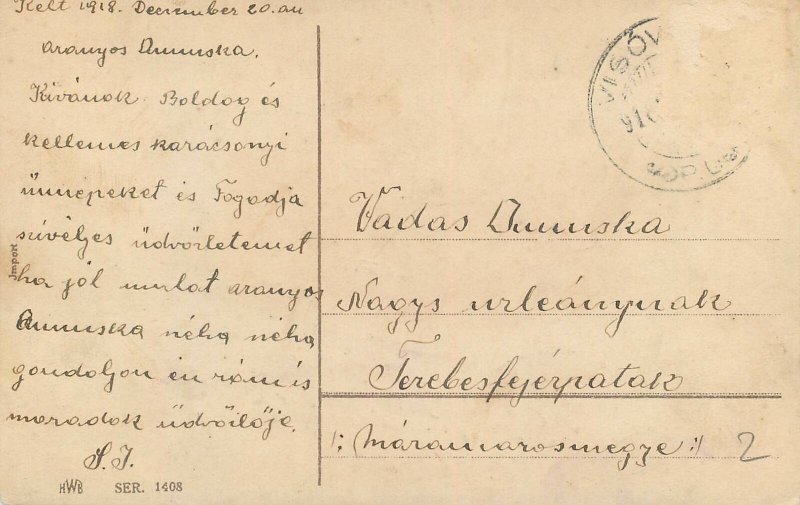 Kelt 1918. December 20.án
aranyos Annuska.
Kívánok Boldog és
kellemes karácsonyi
ünnepeket és Fogadja
szivéljes üdvözletemet
ha jól mulat aranyos
Annuska néha néha
gondoljon én rám is
maradok üdvözlője.
S. J.
Import
HWB SER. 1408
VISÓV
91
Vadas Annuska
Nagys urleánynak
Terebesfejérpatak
/: Máramarosmegye :/ 2